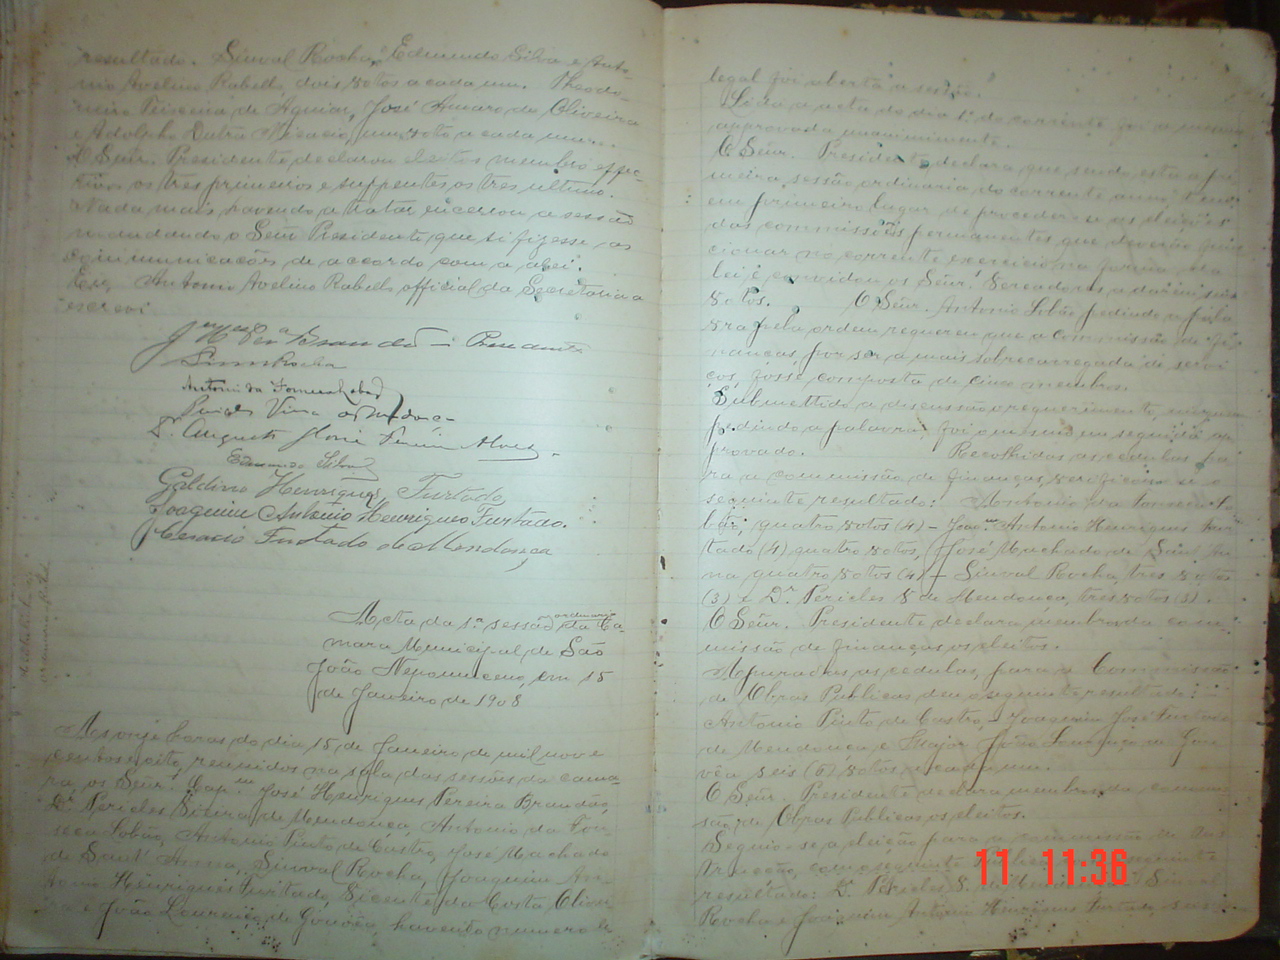 resultado. Sinval Rocha, Edmundo Silva e Anto-
nio Avelino Rabello, dois votos a cada um. Theodo-
miro Teixeira de Aguiar, José Amaro de Oliveira
e Adolpho Dutra Nicacio, um voto a cada um.
O Señr. Presidente declarou eleitos membro effec-
tivos os tres primeiros e supplentes os tres ultimo.
Nada mais havendo a tratar encerrou a sessão
mandando o Señr Presidente que si fizesse as
communicacões de accordo com a lei.
Eu, Antonio Avelino Rabello official da Secretaria a
escrevi
Brandão - Presidente
Sinval Rocha
Antonio da Fonseca Lobão
Pericles Vieira de Mendonca
Dr. Augusto Gloria Ferreira Alves
Edmundo Silva
Galdino Henriques Furtado
Joaquim Antonio Henriques Furtado.
Horacio Furtado de Mendonça
Acta da 1ª sessão ordinaria da Ca-
mara Municipal de São
João Nepomuceno, em 15
de Janeiro de 1908
As onze horas do dia 15 de Janeiro de mil nove
centos e oito, reunidos na sala das sessões da cama-
ra, os Señr. Capm. José Henriques Pereira Brandão,
Dr. Pericles Vieira de Mendonca, Antonio da Fon-
seca Lobão, Antonio Pinto de Castro, José Machado
de Sant' Anna, Sinval Rocha, Joaquim An-
tonio Henriques Furtado, Vicente da Costa Olivei
ra e João Lourenço de Gouvêa, havendo numero le
legal foi aberta a sessão.
Lida a acta do dia 1º do corrente foi a mesma
approvada unanimimente.
O Señr. Presidente declara que sendo esta a pri-
meira sessão ordinaria do corrente anno, tem
em primeiro lugar de proceder-se as eleições
das commissões permanentes que deverão func
cionar no corrente exercicio na forma da
lei, e convidou os Señr. Vereadores a darem seus
votos. O Señr. Antonio Lobão pedindo a pala
vra pela ordem requereu que a commissão de fi-
nanças, por ser a mais sobrecarregada de servi
cos, fosse composta de cinco membros.
Submettido a discussão o requerimento, ninguem
pedindo a palavra, foi o mesmo em seguida ap
provado. Recolhidas as cedulas pa
ra a commissão de finanças verificou-se o
seguinte resultado: Antonio da Fonseca Lo
bão, quatro votos (4) - Joaqm. Antonio Henriques Fur
tado (4) quatro votos, José Machado de Sant' An
na quatro votos (4) - Sinval Rocha, tres votos
(3) e Dr. Pericles V. de Mendonça, tres votos (3).
O Señr. Presidente declara membros da com-
missão de finanças os eleitos.
Apuradas as cedulas, para a Commissão
de Obras Publicas deu o seguinte resultado:
Antonio Pinto de Castro, - Joaquim José Furtado
de Mendonca e Major João Lourenço de Gou
vêa seis (6) votos a cada um.
O Señr. Presidente declara membros da commis-
são de Obras Publicas os eleitos.
Seguio-se a eleição para a commissão de Ins
trucção, com o seguinte
resultado: Dr. Pericles V. de Mendonça, Sinval
Rocha e Joaquim Antonio Henriques Furtado, seis
11 11:36